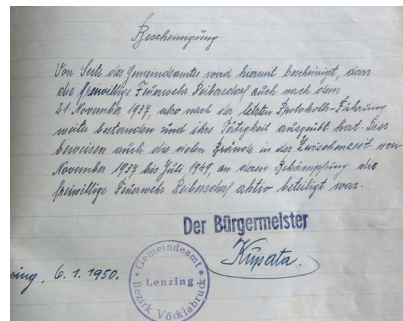 Bescheinigung
Von Seite des Gemeindeamtes wird hiermit bescheinigt, dass
die freiwillige Feuerwehr Reibersdorf auch nach dem
21. November 1937, also nach der letzten Protokoll-Führung
weiter bestanden und ihre Tätigkeit ausgeübt hat. Dies
beweisen auch die vielen Brände in der Zwischenzeit von
November 1937 bis Juli 1949, an deren Bekämpfung die
freiwillige Feuerwehr Reibersdorf aktiv beteiligt war.
Der Bürgermeister
Gemeindeamt
Lenzing
Bezirk Vöcklabruck
zing, 6.1.1950.